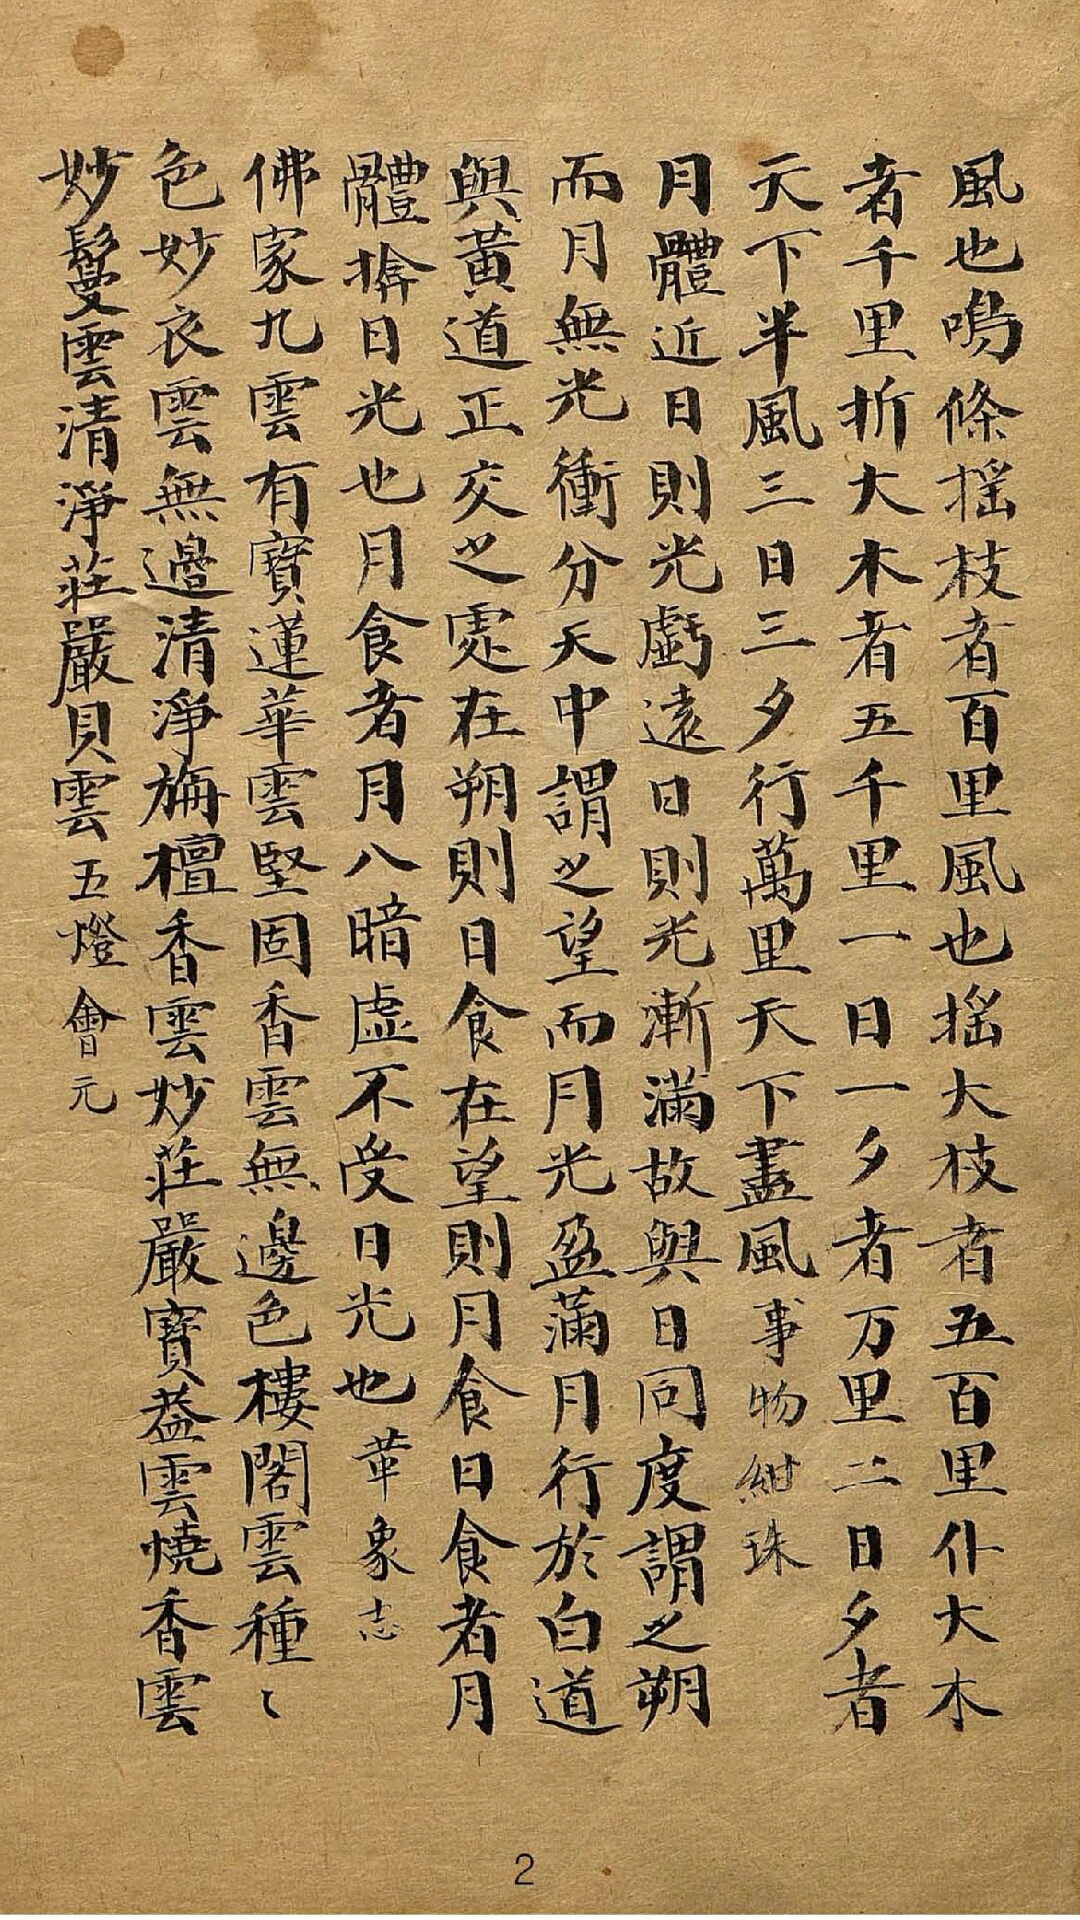 風也鳴條摇枝者百里風也摇大枝者五百里仆大木
者千里折大木者五千里一日一夕者万里二日夕者
天下半風三日三夕行萬里天下盡風事物紺珠
月體近日則光虧遠日則光漸滿故與日同度謂之朔
而月無光衝分天中謂之望而月光盈滿月行於白道
與黃道正交之處在朔則日食在望則月食日食者月
體揜日光也月食者月八暗虛不受日光也革象志
佛家九雲有寶蓮華雲堅固香雲無邊色樓閣雲種〻
色妙衣雲無邊清淨旃檀香雲妙莊嚴寶葢雲燒香雲
妙鬘雲清淨莊嚴貝雲五燈會元
2